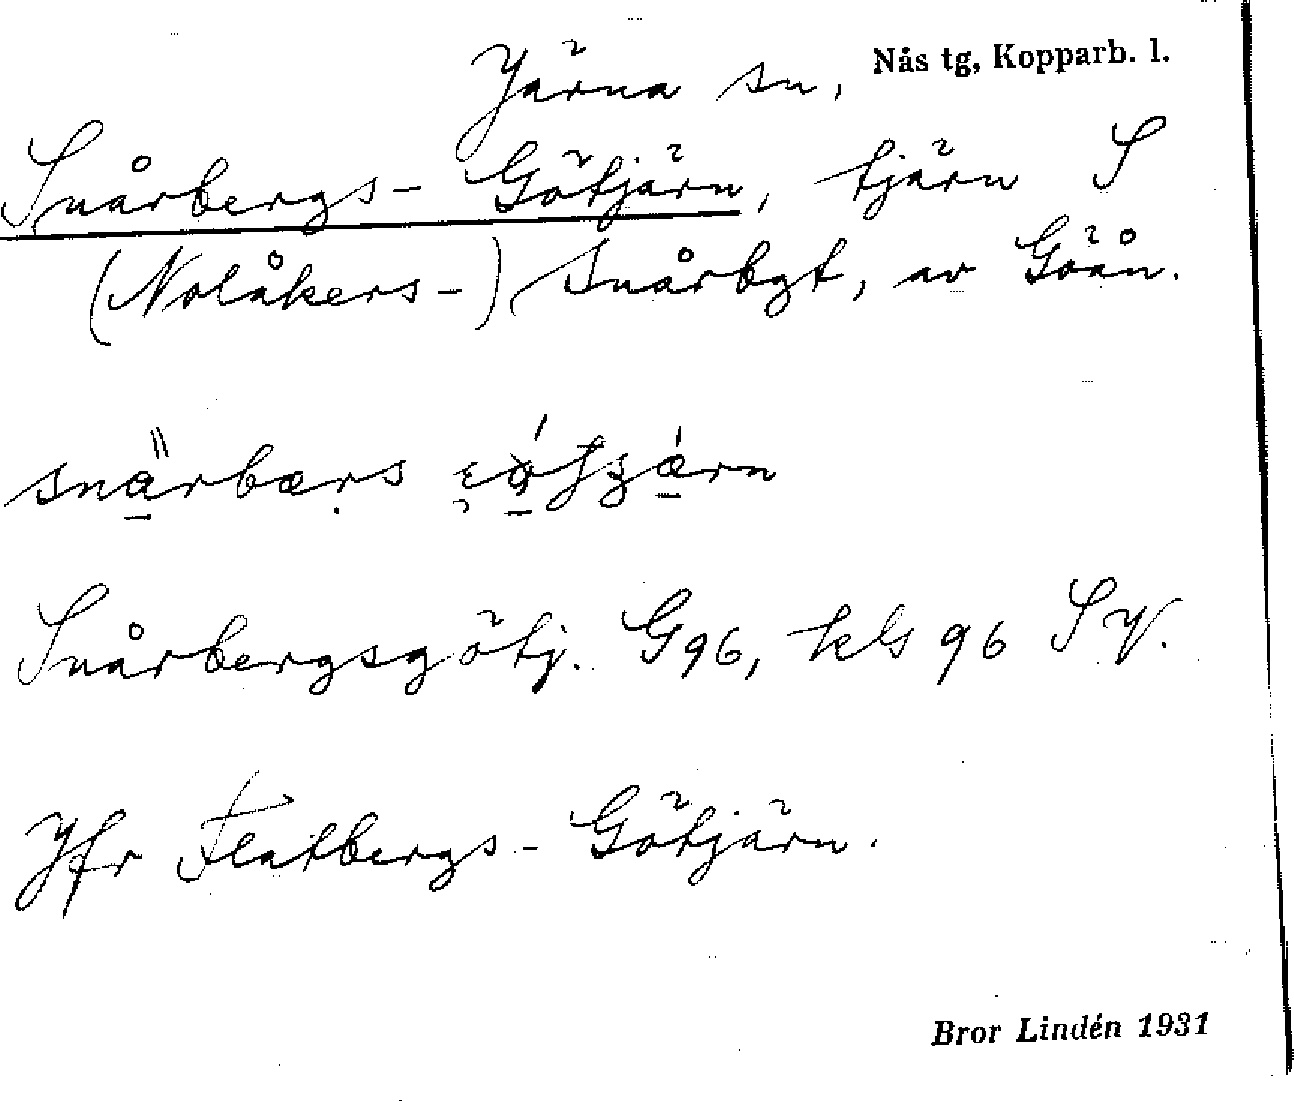 Järna sn, Nås tg, Kopparb. l.
Snårbergs-Götjärn, tjärn S
(Nolåkers-) Snårbgt, av Göån.
Snårbergsgötj. G96, kls 96 SV.
Jfr Flatbergs-Götjärn.
Bror Lindén 1931